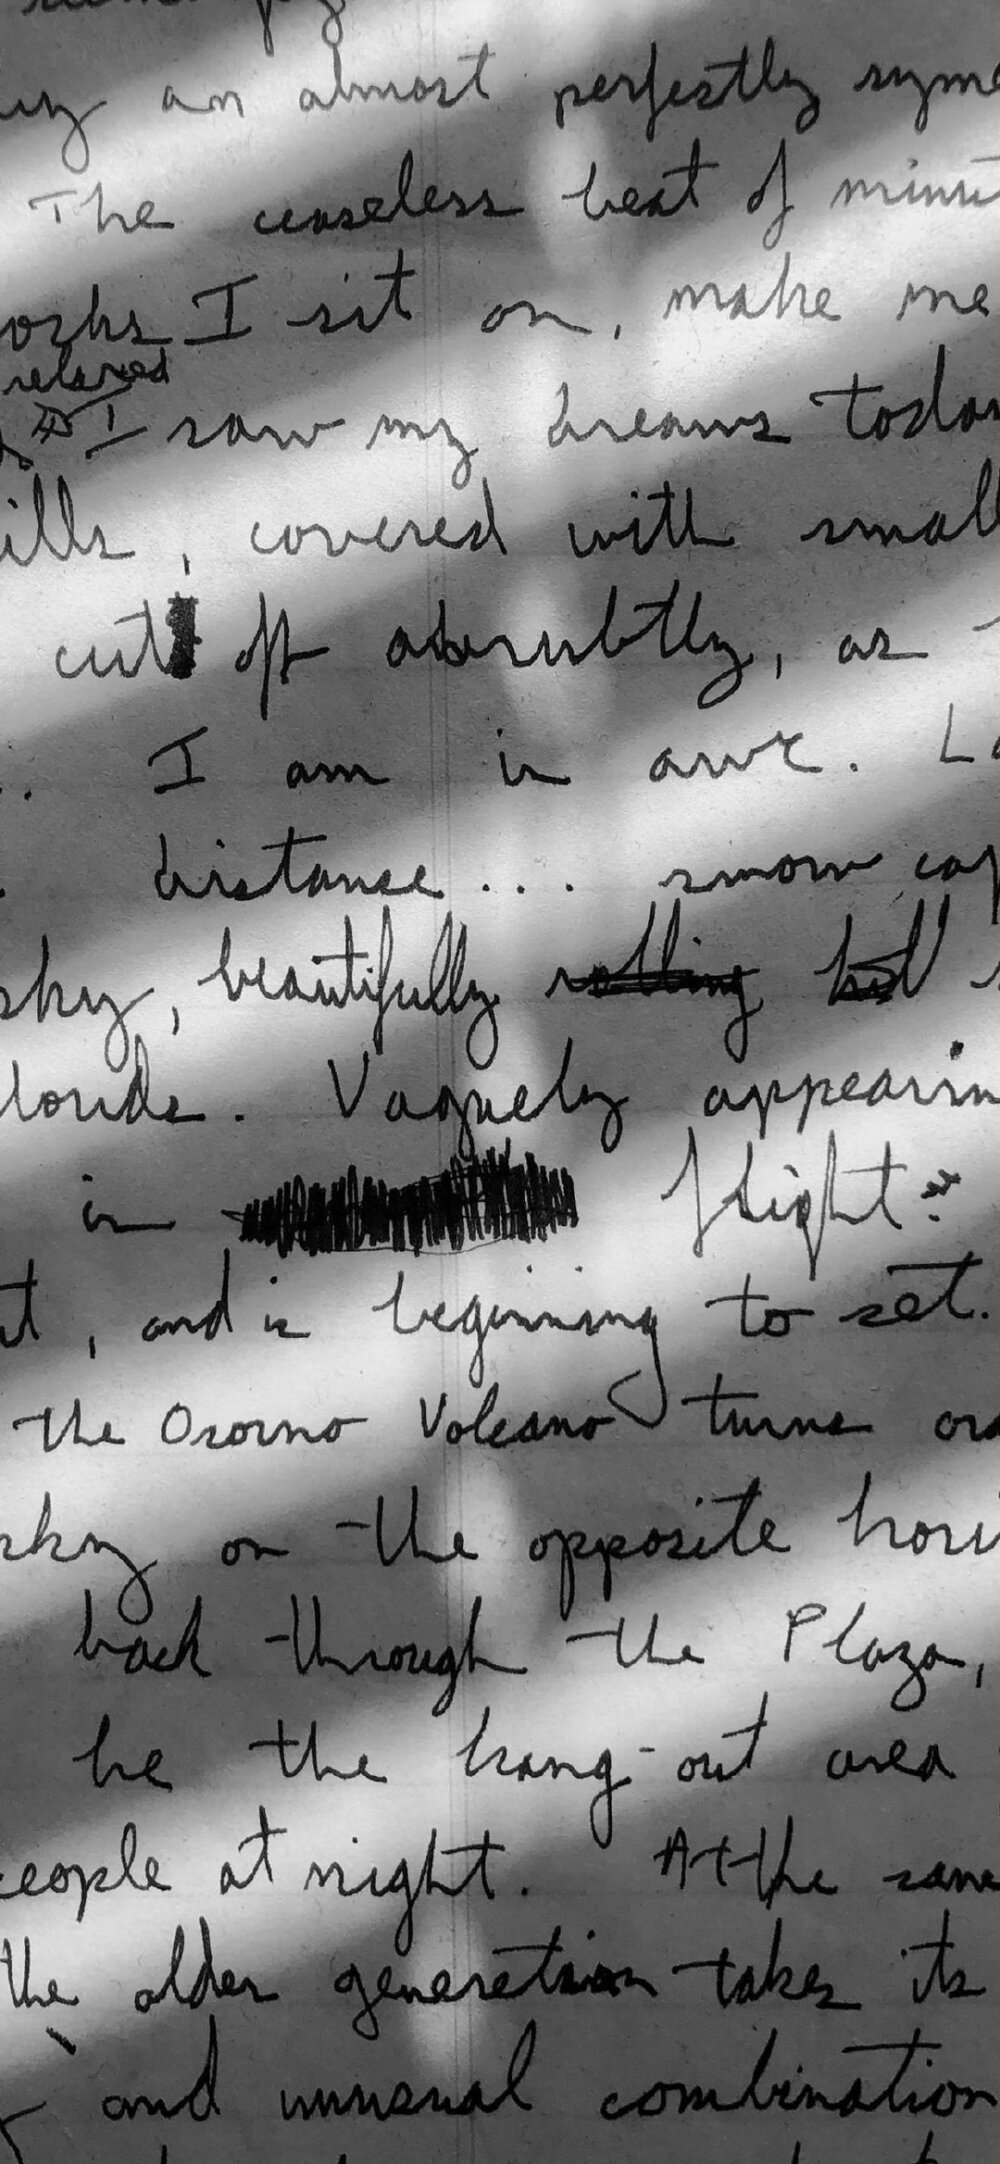 an almost perfestly syme
The ceaseless beat of minut
ocks I sit on, make me
relaxed
I saw my dreams today
ills, covered with small
cut off abrubtly, as
I am in awe. La
distance... snow cap
sky, beautifully rolling hill
louds. Vaguely appearin
in flight?
t, and is beginning to set.
the Osorno Volcano turns ora
sky on the opposite hori
back through the Plaza,
be the hang-out area
eople at night. At the same
the older generation takes its
and unusual combination